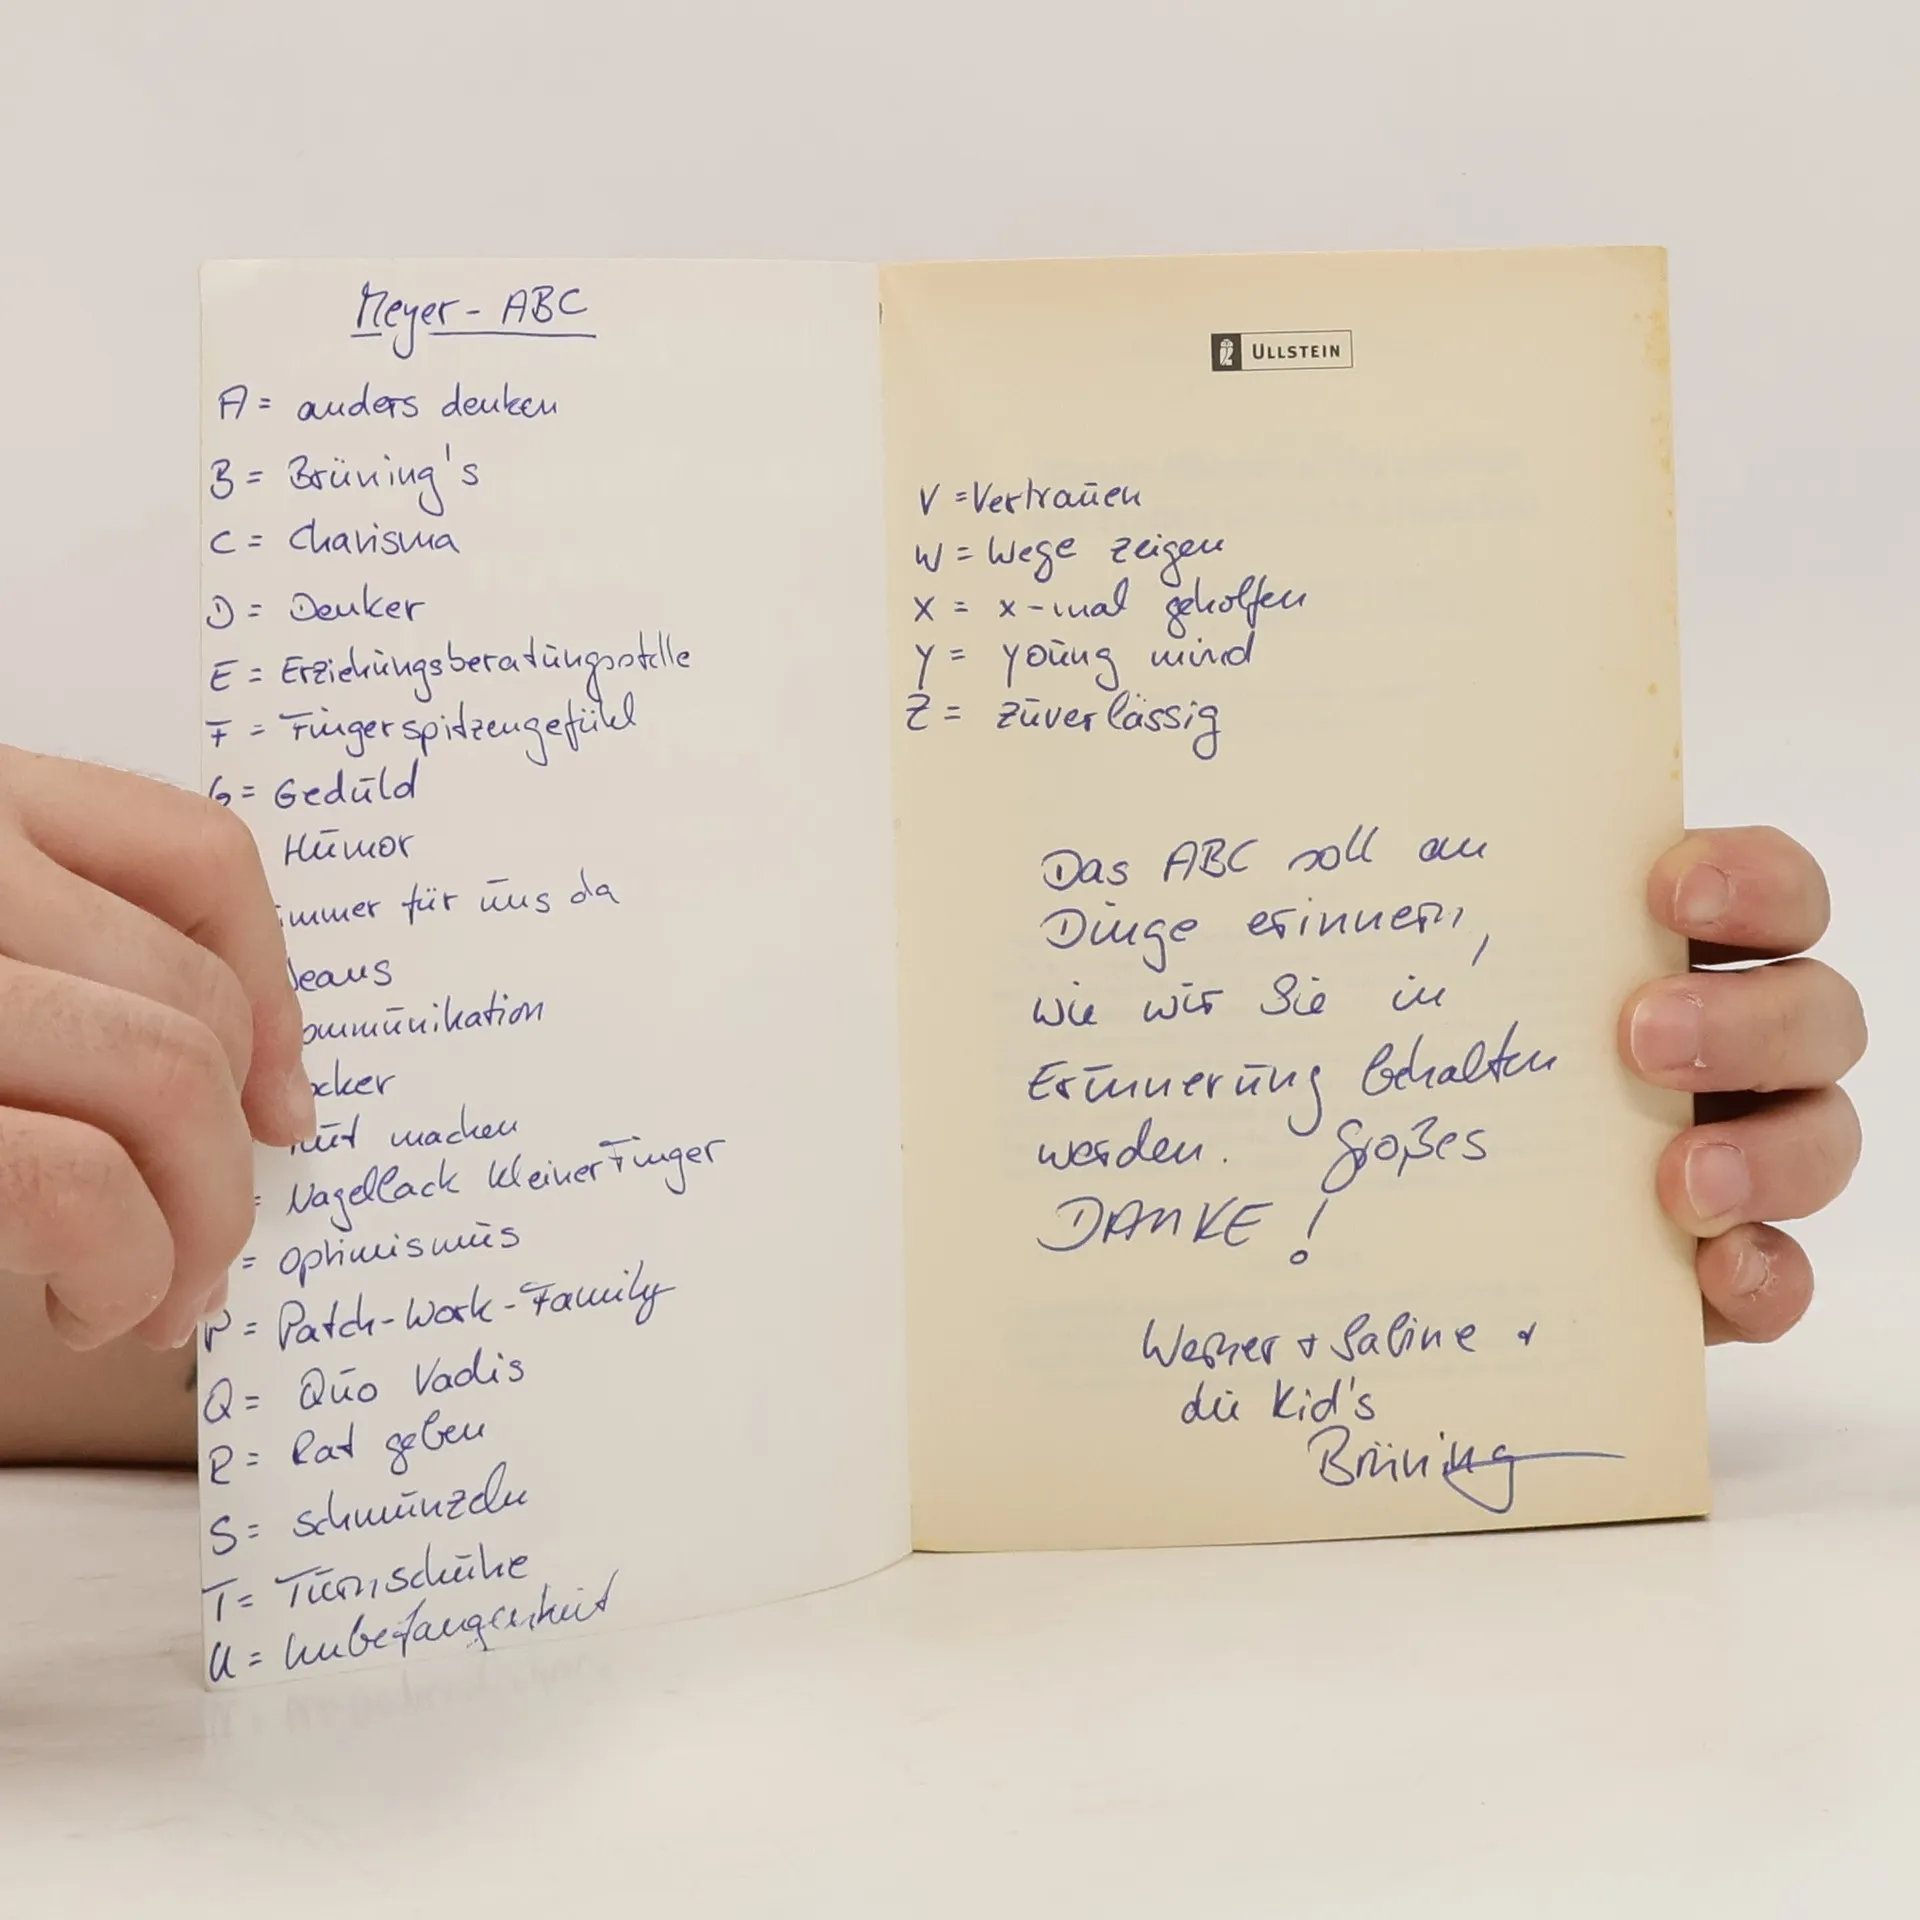 Meyer - ABC
A = anders denken
B = Brüning's
C = Charisma
D = Denker
E = Erziehungsberatungsstelle
F = Fingerspitzengefühl
G = Geduld
Humor
immer für uns da
Jeans
ommunikation
ocker
Mut machen
= Nagellack kleiner Finger
= Optimismus
P = Patch-Work-Family
Q = Quo Vadis
R = Rat geben
S = schmunzeln
T = Turnschuhe
U = Unbefangenheit
ULLSTEIN
V = Vertrauen
W = Wege zeigen
X = x-mal geholfen
Y = young mind
Z = zuverlässig
Das ABC soll an
Dinge erinnern,
wie wir Sie in
Erinnerung behalten
werden. Großes
DANKE!
Werner + Sabine +
die Kid's
Brüning